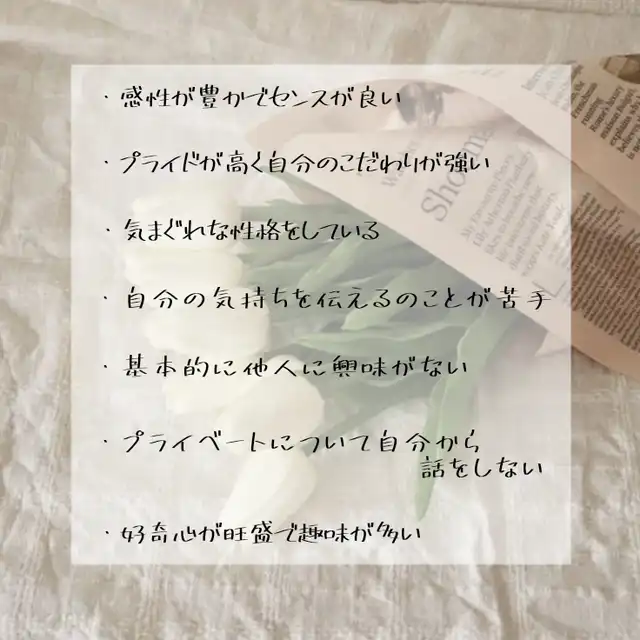 ・感性が豊かでセンスが良い
・プライドが高く自分のこだわりが強い
・気まぐれな性格をしている
・自分の気持ちを伝えるのことが苦手
・基本的に他人に興味がない
・プライベートについて自分から
話をしない
・好奇心が旺盛で趣味が多い